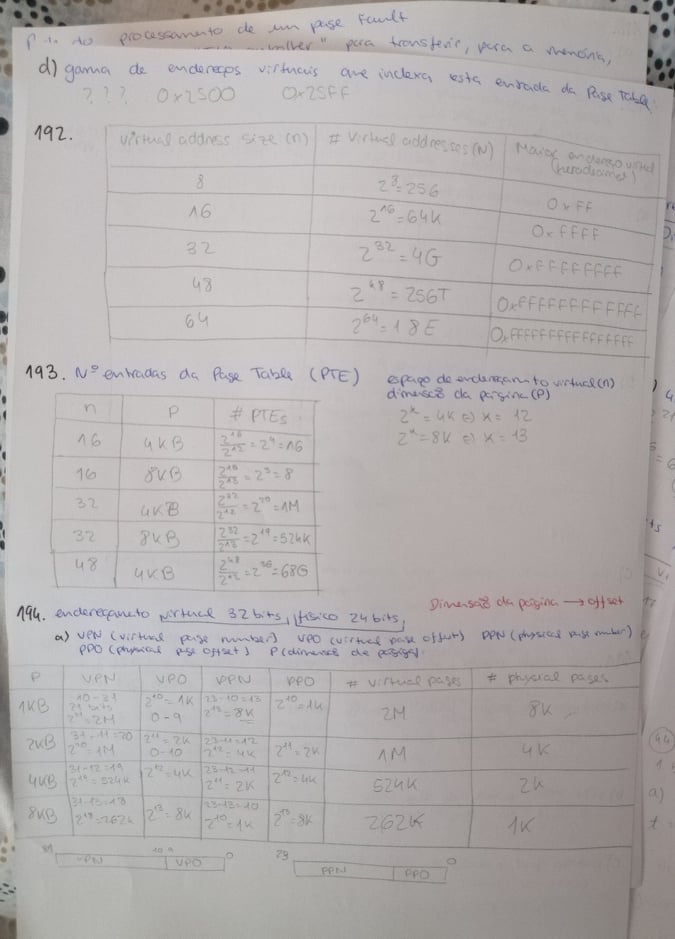 processamento de um page fault
para transferir, para a memória,
d) gama de endereços virtuais que indexa esta entrada da Page Table.
? ? ? 0x2500 0x25FF
192.
virtual address size (n) # virtual addresses (N) Maior endereço virtual (hexadecimal)
8 2^8=256 0xff
16 2^16=64K 0xffff
32 2^32=4G 0xffffffff
48 2^48=256T 0xffffffffffff
64 2^64=18E 0xffffffffffffffff
193. Nº entradas da Page Table (PTE) espaço de endereçamento virtual (n)
dimensão da página (P)
2^x = 4K ⇔ x = 12
2^x = 8K ⇔ x = 13
n P # PTEs
16 4KB 2^16/2^12 = 2^4 = 16
16 8KB 2^16/2^13 = 2^3 = 8
32 4KB 2^32/2^12 = 2^20 = 1M
32 8KB 2^32/2^13 = 2^19 = 524K
48 4KB 2^48/2^12 = 2^36 = 68G
Dimensão da página → offset
194. endereçamento virtual 32 bits, físico 24 bits,
a) VPN (virtual page number) VPO (virtual page offset) PPN (physical page number)
PPO (physical page offset) P (dimensão da página)
P VPN VPO PPN PPO # virtual pages # physical pages
1KB 10-31 21 bits 2^21=2M 2^10=1K 0-9 23-10=13 2^13=8K 2^10=1K 2M 8K
2KB 31-11=20 2^20=1M 2^11=2K 0-10 23-11=12 2^12=4K 2^11=2K 1M 4K
4KB 31-12=19 2^19=524K 2^12=4K 23-12=11 2^11=2K 2^12=4K 524K 2K
8KB 31-13=18 2^18=262K 2^13=8K 23-13=10 2^10=1K 2^13=8K 262K 1K
31 10 9 0 23 0
VPN VPO PPN PPO